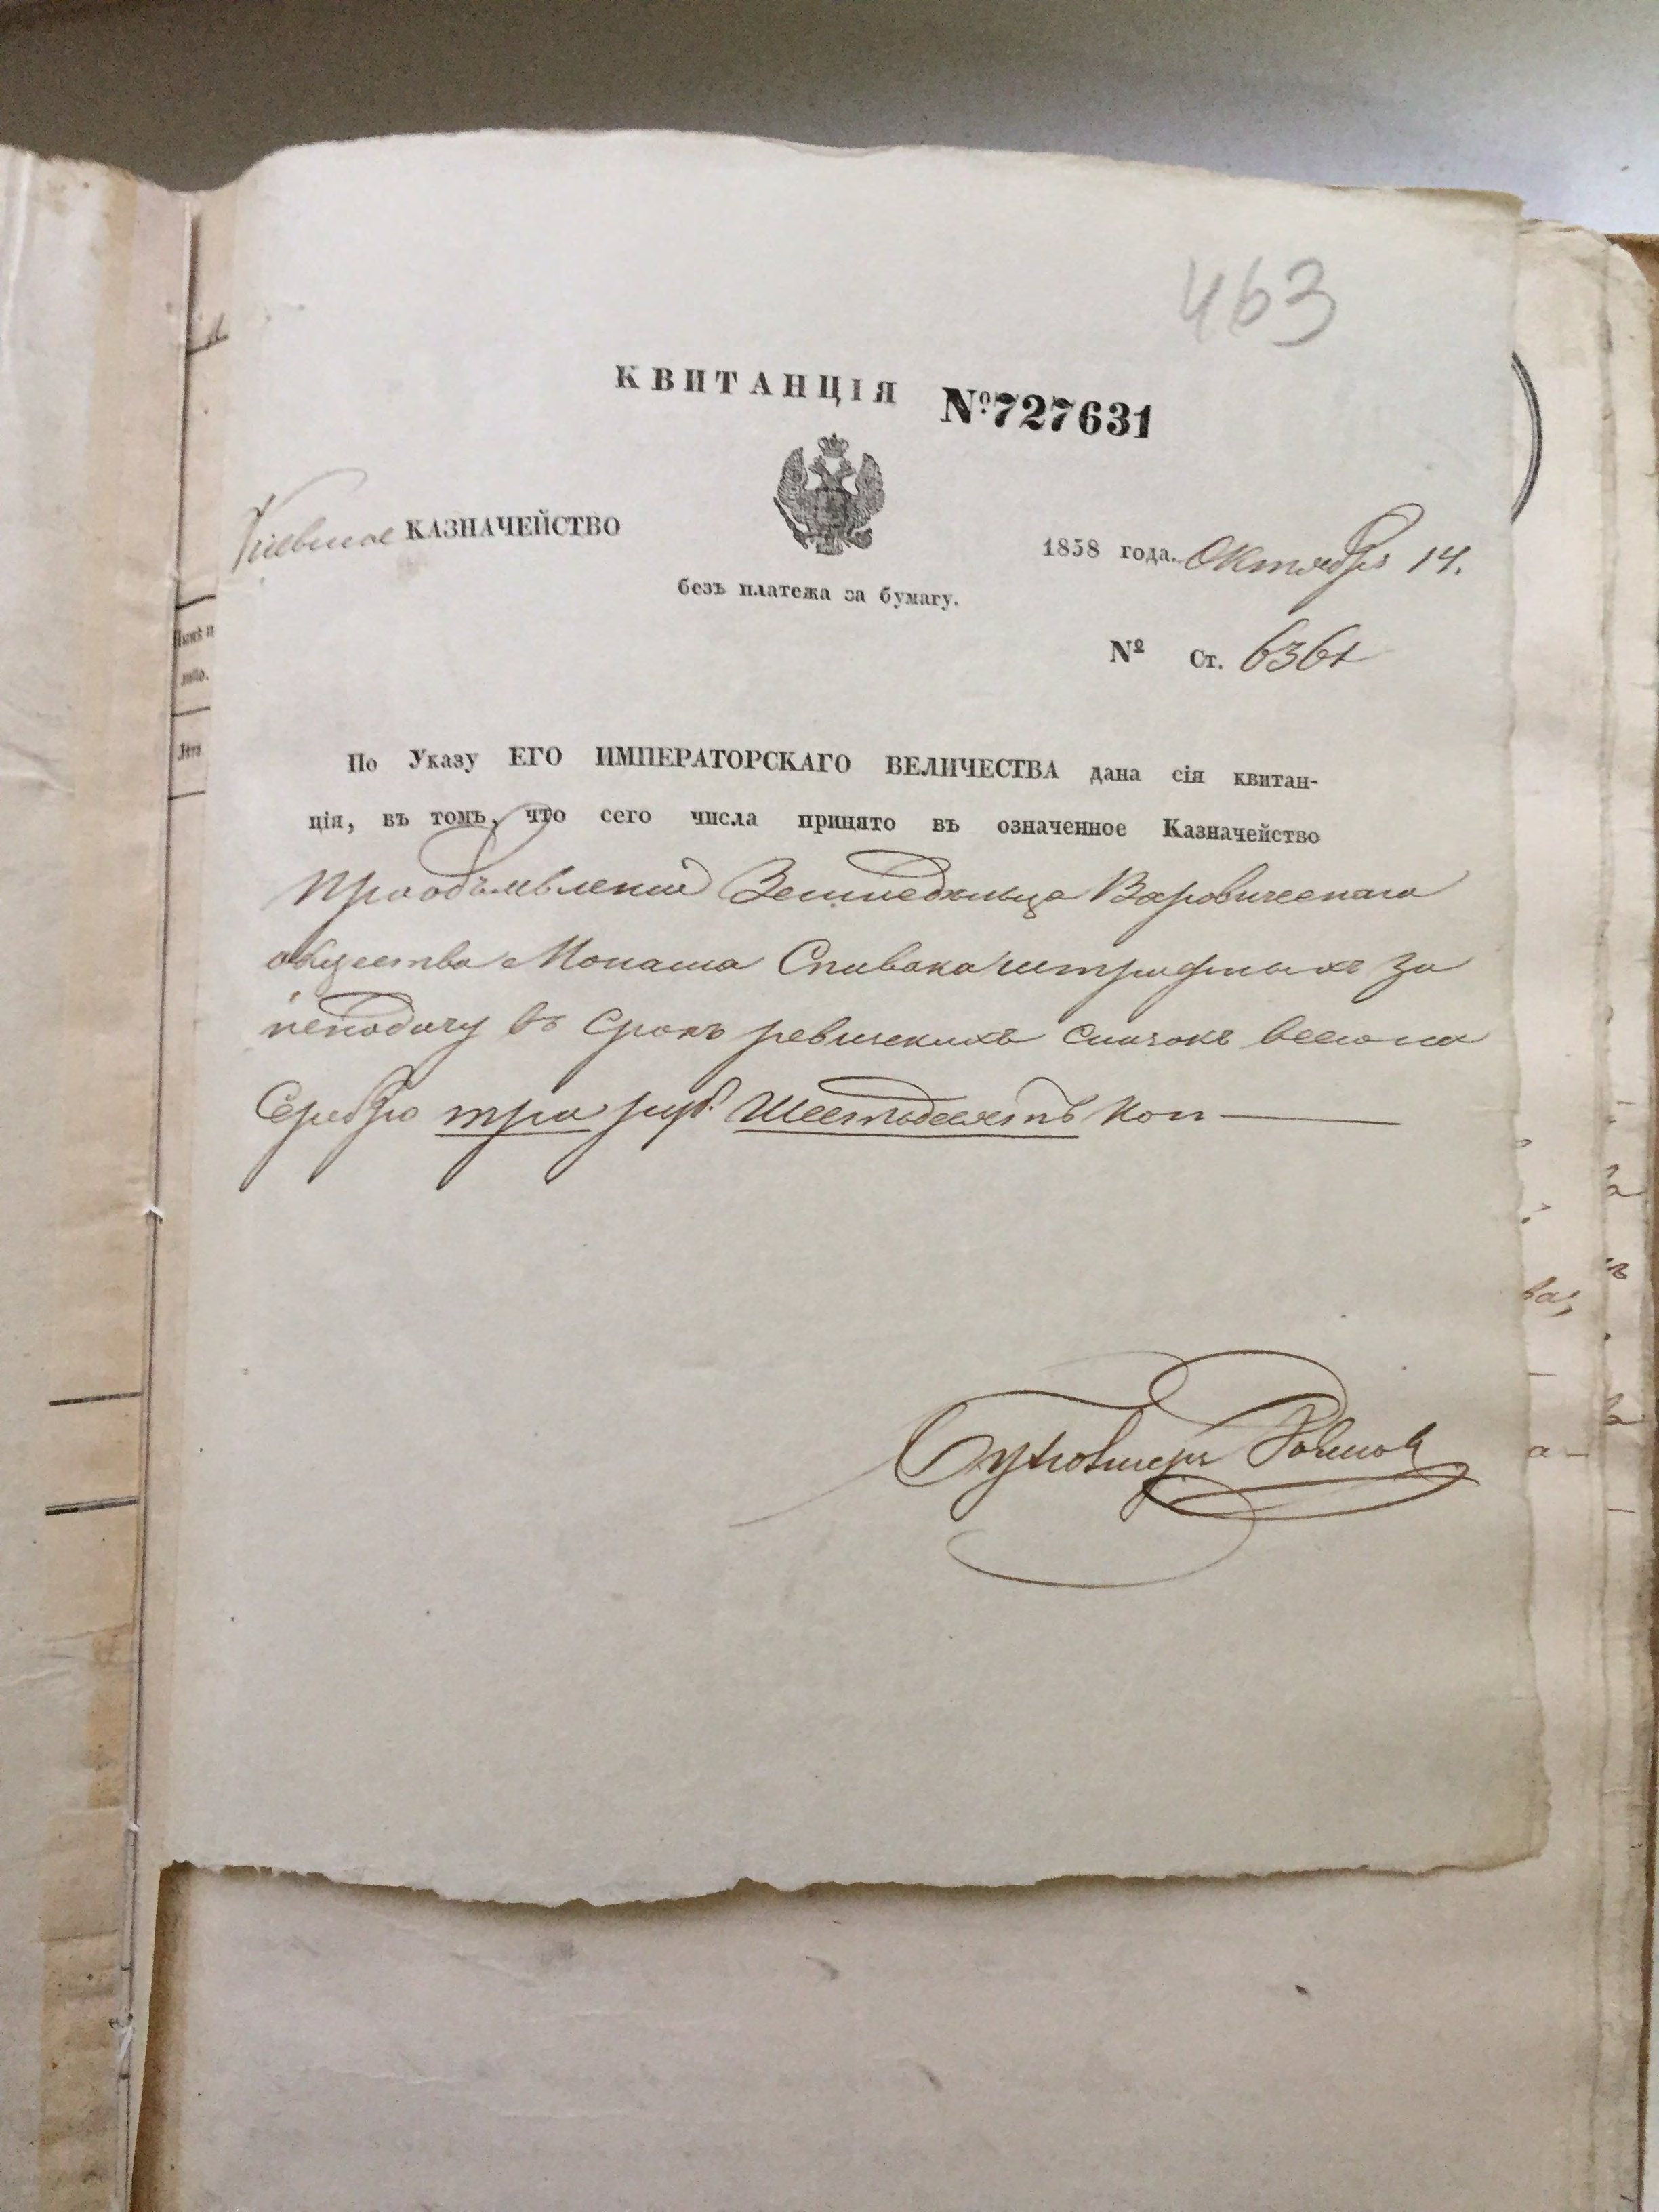 463
КВИТАНЦІЯ №727631
Кіевское КАЗНАЧЕЙСТВО
1858 года. Октября 14.
безъ платежа за бумагу.
№ Ст. 6361
По Указу ЕГО ИМПЕРАТОРСКАГО ВЕЛИЧЕСТВА дана сія квитан-
ція, въ томъ, что сего числа принято въ означенное Казначейство
При объявленіи Земледельца Варовическаго
общества Монаша Спивака штрафныхъ за
неподачу въ срокъ ревизскихъ сказокъ всего на
Серебро три руб. Шестьдесятъ Коп
Бухгалтеръ